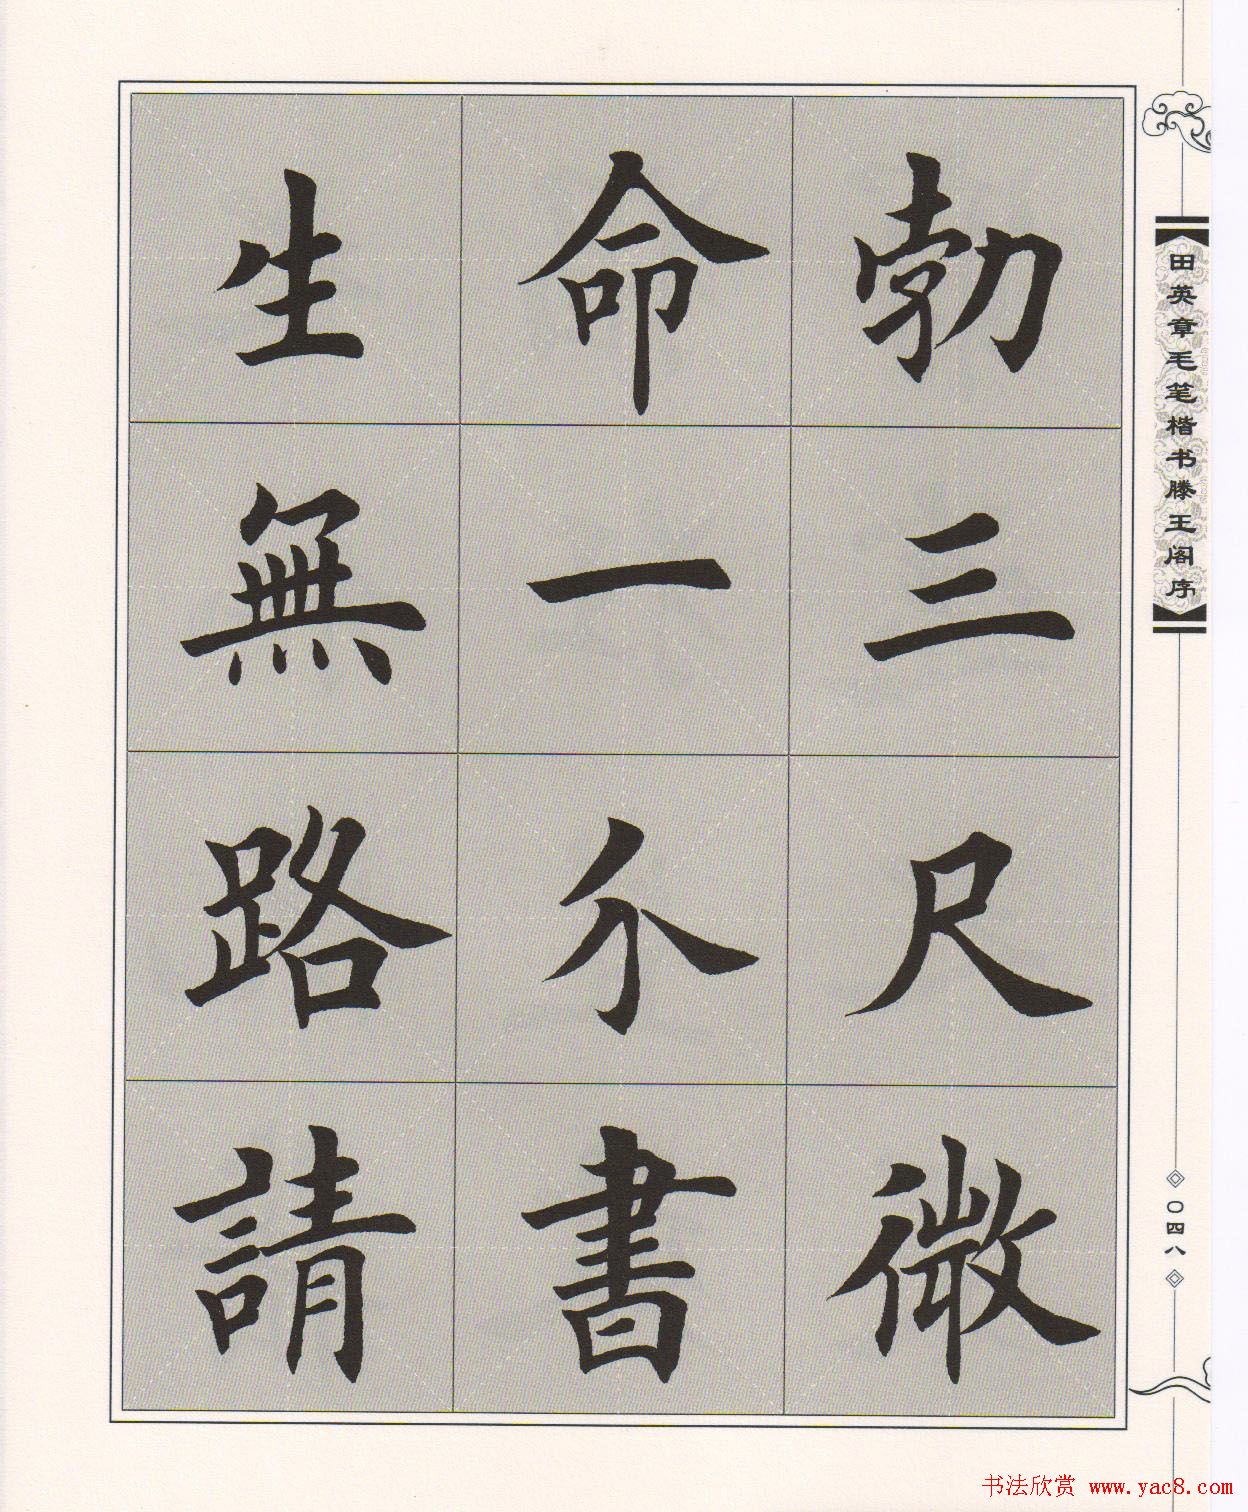 勃三尺微
命一介書
生無路請
田英章毛笔楷书滕王阁序
〇四八
书法欣赏 www.yac8.com